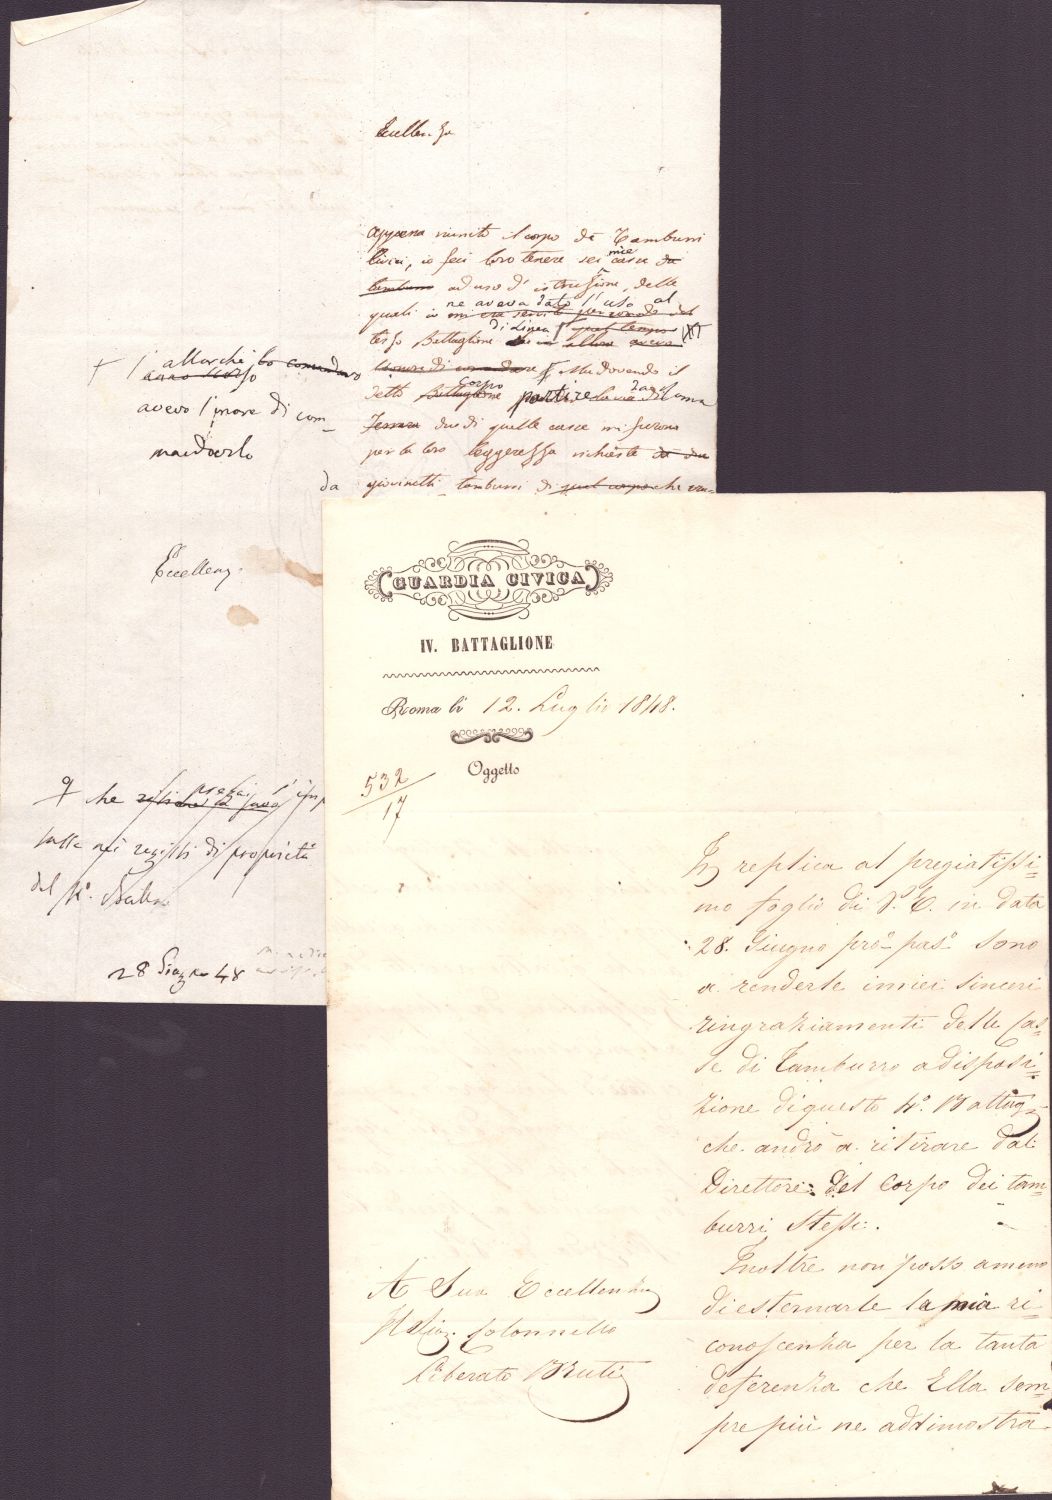 Eccellenza
appena riunito il corpo de Tamburri
Civici, io feci loro tenere sei mie casse da
tamburo ad uso d'istruzione, delle
quali io ne aveva dato l'uso al
mi era servito
terzo Battaglione di Linea
allora aveva
l'onore di comandare Ma dovendo il
detto Battaglione Corpo partire da Roma
Ferrara due di quelle casse mi furono
per la loro leggerezza richieste da due
giovinetti tamburri di quel corpo che
allorché lo comandavo
anno scorso
avevo l'onore di com-
mandarlo
da
Eccellenza
che prestai
sulle nei registri di proprietà
del
28 Giugno 48
GUARDIA CIVICA
IV. BATTAGLIONE
Roma li 12. Luglio 1848.
Oggetto
532
17
In replica al pregiatissi=
mo foglio di V. E. in data
28. Giugno pro. pas.o sono
a renderle i miei sinceri
ringraziamenti delle Cas=
se di Tamburro a disposi=
zione di questo 4.o Battag.
che andrò a ritirare dal
Direttore del Corpo dei tam=
burri stessi.
Inoltre non posso ameno
di esternarle la mia ri=
conoscenza per la tanta
deferenza che Ella sem=
pre più ne addimostra
A Sua Eccellenza
Il Sig. Colonnello
Liberato Bruti